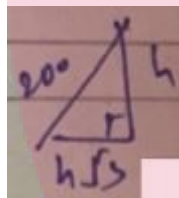 200
h
h√3